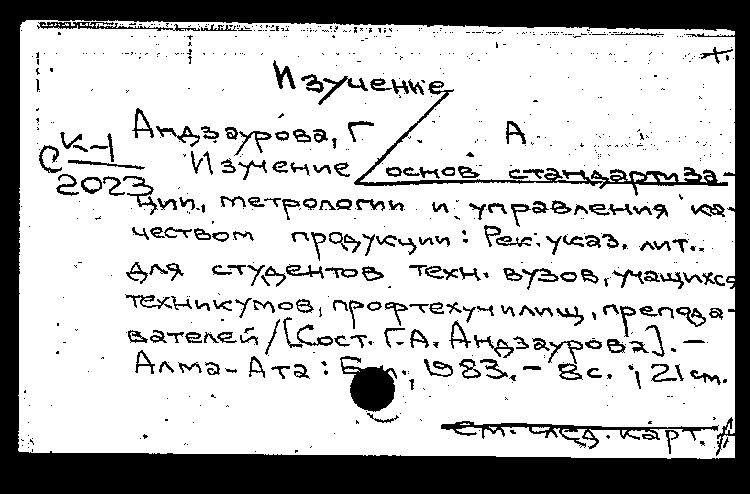 Изучение
Андзаурова, Г. А
С К-1
2023
Изучение основ стандартиза-
ции, метрологии и управления ка-
чеством продукции: Рек. указ. лит..
для студентов техн. вузов, учащихся
техникумов, профтехучилищ, препода-
вателей/[Сост. Г.А. Андзаурова]. –
Алма-Ата: Б.и., 1983. – 8с. ; 21 см.
см. след. карт.